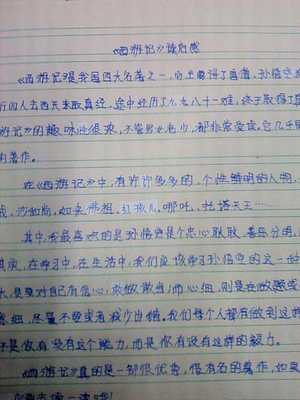 《西游记》读后感
《西游记》是我国四大名著之一,向来赢得了喜道,孙悟空
行四人去西天求取真经,途中经历了九九八十一难,终于取得了
游记》的趣味性很浓,不管男女老少,都非常爱读,也几乎
的著作。
在《西游记》中,有许许多多的,个性鲜明的人物,
戒,沙和尚,如来佛祖,红孩儿,哪吒,托塔天王……
其中,我最喜欢的是孙悟空是个忠心耿耿、善恶分明,
其实,在学习中,在生活中,我们应该学习孙悟空的这一
是要对自己有信心,敢做敢当;而心细,则是在做题
细,尽量不要或者减少出错。我们每个人都有做到这样
不是你有没有这个能力,而是你有没有这样的毅力。
《西游记》真的是一部很优秀,很有名的著作,如